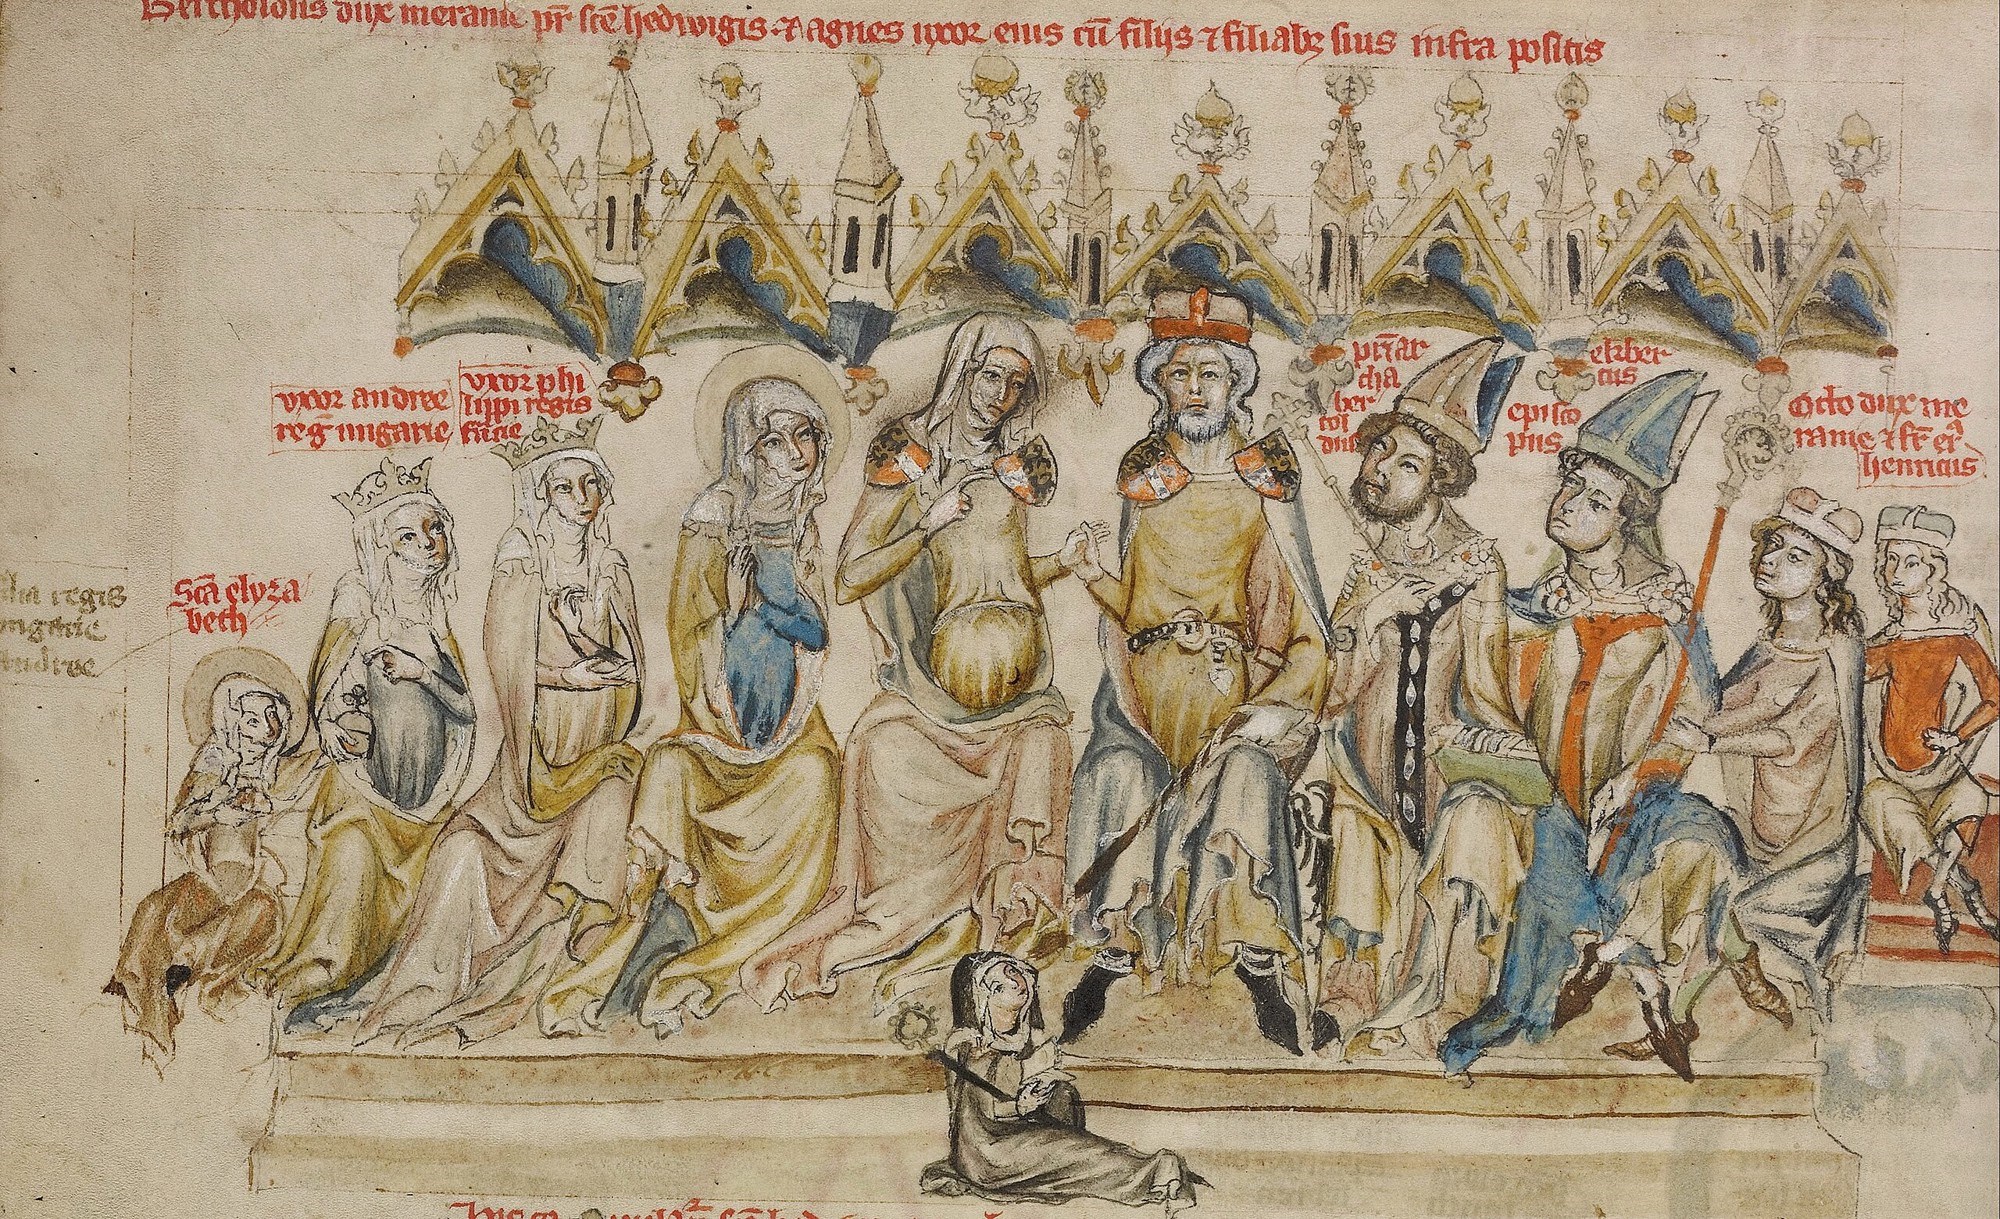 Bertholdus dux meranie pr̄ scē hedwigis ⁊ agnes uxor eius cū filijs ⁊ filiabꝫ suis infra positis
uxor andree
reḡ ungarie
uxor phi
lippi regis
patriar
cha
ber
tol
dus
ekber
tus
epis co
pus
Otto dux me
ranie ⁊ fr̄ ei᷒
henricus
Scā elyza
beth
filia regis
ungarie
Andree